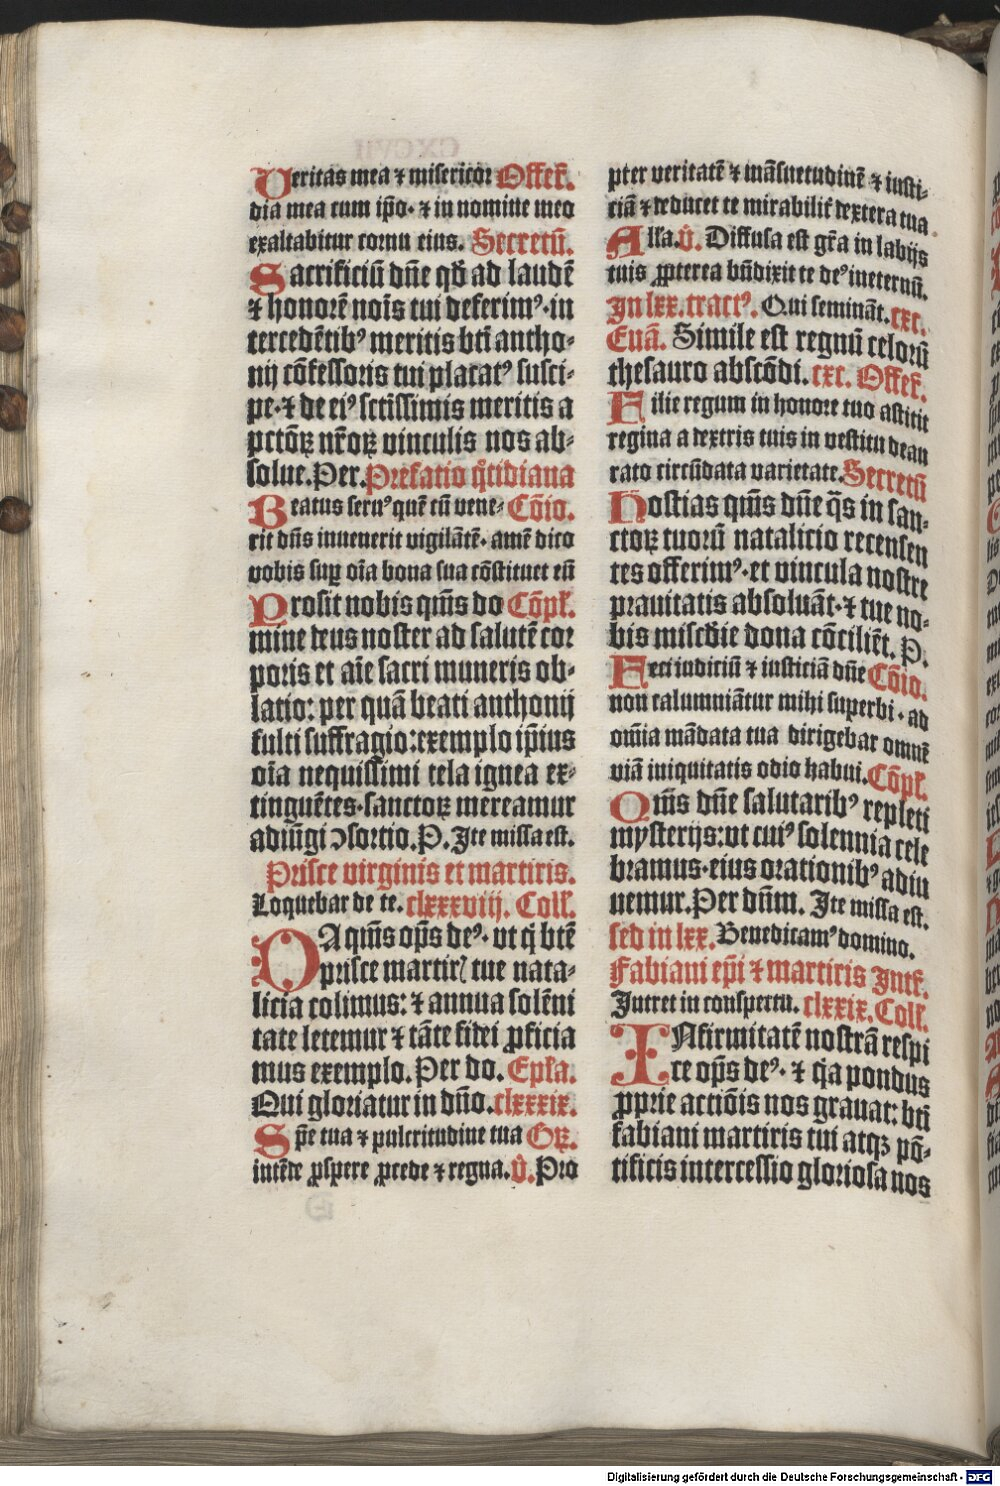 Veritas mea ⁊ misericor Offert̄.
dia mea cum ip̄o· ⁊ in nomine meo
exaltabitur cornu eius. Secretū.
Sacrificiū dn̄e qd̄ ad laudē
⁊ honorē noīs tui deferimꝰ·in
tercedētibꝰ meritis bt̄i antho-
nij cōfessoris tui placatꝰ susci-
pe·⁊ de eiꝰ sctīssimis meritis a
pctōꝝ nr̄oꝝ vinculis nos ab-
solue. Per. Prefatio q̄tidiana
Beatus seruꝰ quē cū vene- Cōio.
rit dn̄s inuenerit vigilātē· amē dico
vobis suꝑ oīa bona sua cōstituet eū
Prosit nobis qm̄s do Cōpl̄.
mine deus noster ad salutē cor
poris et aīe sacri muneris ob-
latio: per quā beati anthonij
fulti suffragio: exemplo ip̄ius
oīa nequissimi tela ignea ex-
tinguētes·sanctoꝝ mereamur
adiūgi ↄsortio. P. Ite missa est.
Prisce virginis et martiris.
Loquebar de te. clxxxviij. Coll̄.
DA qm̄s op̄s deꝰ· vt q̄ btē
prisce martirꝭ tue nata-
licia colimus: ⁊ annua solēni
tate letemur ⁊ tāte fidei ꝓficia
mus exemplo. Per do. Epl̄a.
Qui gloriatur in dn̄o. clxxxix.
Spē tua ⁊ pulcritudine tua Gꝝ.
intēde ꝓspere ꝓcede ⁊ regna. v̄. Pro
pter veritatē ⁊ māsuetudinē ⁊ iusti-
ciā ⁊ deducet te mirabilit̄ dextera tua
Alla. v̄. Diffusa est gr̄a in labijs
tuis ꝓpterea bn̄dixit te deꝰ ineternū.
In lxx. tractꝰ. Qui semināt. cxc.
Euā. Simile est regnū celorū
thesauro abscōdi. cxc. Offert̄.
Filie regum in honore tuo astitit
regina a dextris tuis in vestitu deau
rato circūdata varietate. Secretū
Hostias qm̄s dn̄e q̄s in san-
ctoꝝ tuorū natalicio recensen
tes offerimꝰ·et vincula nostre
prauitatis absoluāt·⁊ tue no-
bis miscd̄ie dona cōciliēt. P.
Feci iudiciū ⁊ iusticiā dn̄e Cōio.
non calumniātur mihi superbi · ad
om̄ia mādata tua dirigebar omnē
viā iniquitatis odio habui. Cōpl̄.
Qm̄s dn̄e salutaribꝰ repleti
mysterijs: vt cuiꝰ solennia cele
bramus·eius orationibꝰ adiu
uemur. Per dn̄m. Ite missa est.
sed in lxx. Benedicamꝰ domino.
Fabiani ep̄i ⁊ martiris Int̄.
Intret in conspectu. clxxix. Coll̄.
INfirmitatē nostrā respi
ce op̄s deꝰ· ⁊ q̄a pondus
ꝓprie actiōis nos grauat: bt̄i
fabiani martiris tui atqꝫ pō-
tificis intercessio gloriosa nos
Digitalisierung gefördert durch die Deutsche Forschungsgemeinschaft - DFG